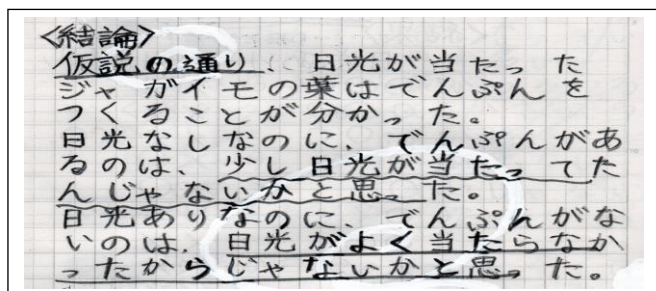 <結論>
仮説の通り、日光が当たった
ジャガイモの葉はでんぷんを
つくることが分かった。
日光なしなのに、でんぷんがあ
るのは、少し日光が当たってた
んじゃないかと思った。
日光ありなのに、でんぷんがな
いのは、日光がよく当たらなか
ったからじゃないかと思った。